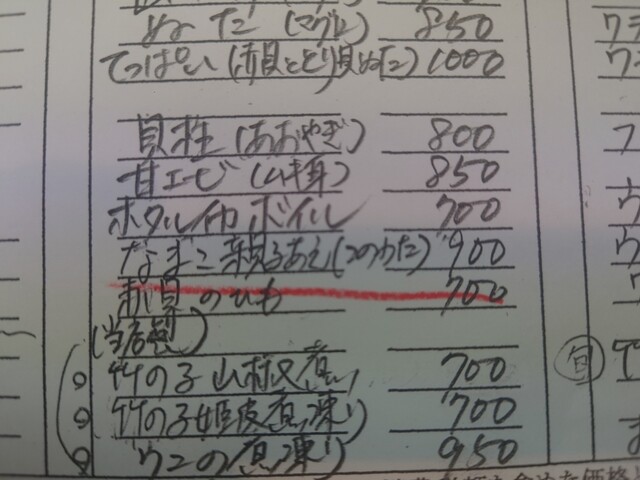 ぬた(マグロ) 850
てっぱい(赤貝ととり貝ぬた) 1000
貝柱(あおやぎ) 800
甘エビ 850
ホタルイカボイル 700
なまこ あえ(このわた) 900
赤貝のひも 700
(当店
竹の子山椒煮 700
竹の子姫皮煮凍り 700
ウニの煮凍り 950
旬